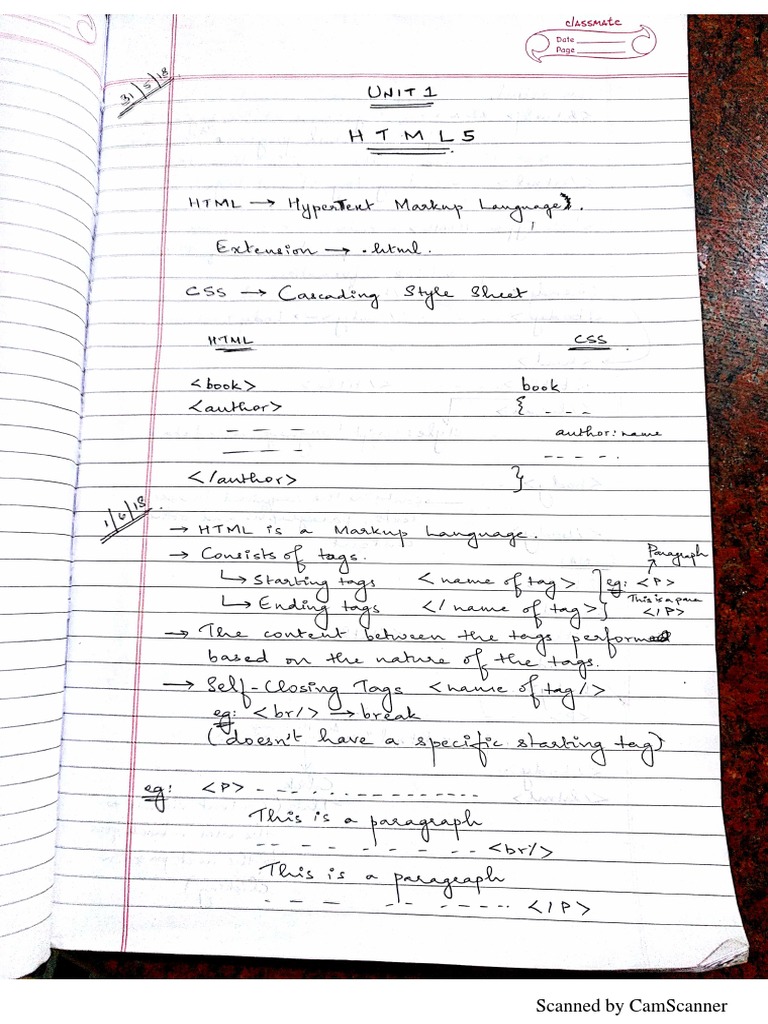 classmate
Date
Page
31/5/18
UNIT 1
HTML5
HTML → HyperText Markup Language.
Extension → .html.
CSS → Cascading Style Sheet
HTML CSS
<book> book
<author> { - - - -
author: name
</author> }
1/6/18
→ HTML is a Markup Language.
→ Consists of tags.
Paragraph
↳ Starting tags <name of tag> eg: <P>
This is a para
↳ Ending tags </name of tag> </P>
→ The content between the tags performed
based on the nature of the tags.
→ Self-Closing Tags <name of tag/>
eg: <br/> → break
(doesn't have a specific starting tag)
eg: <P> - - - - - - - - - - - - - - -
This is a paragraph
-- -- - - - - -- <br/>
This is a paragraph
- - - -- - - - - - - </P>
Scanned by CamScanner